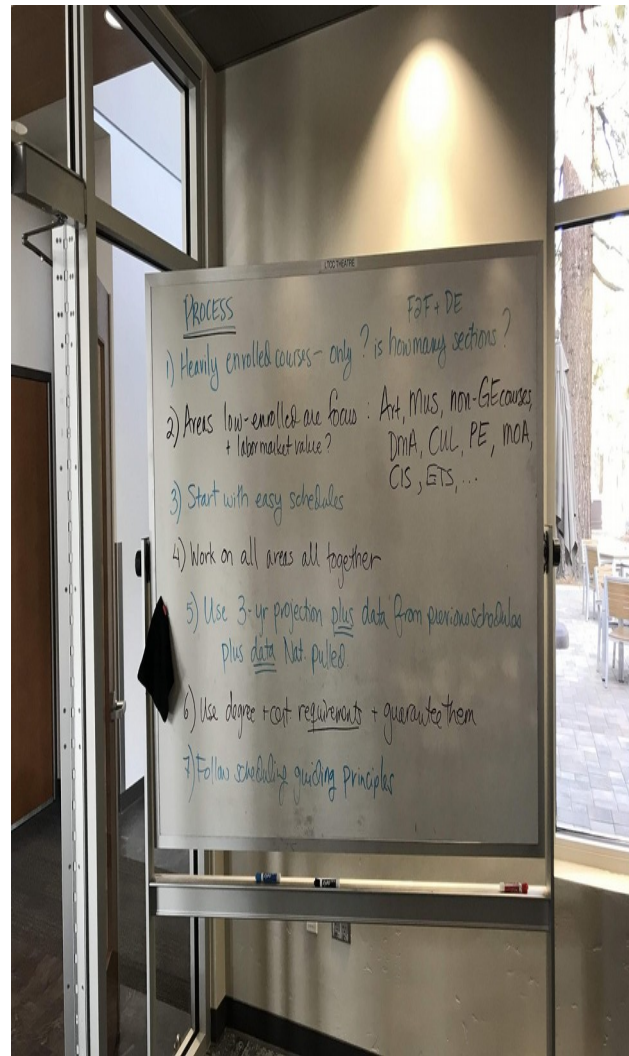 LTCC THEATRE
PROCESS
F2F + DE
1) Heavily enrolled courses - only ? is how many sections ?
2) Areas low-enrolled are focus : Art, Mus, non-GE courses,
+ labor market value? DMA, CUL, PE, MOA,
CIS, ETS, ...
3) Start with easy schedules
4) Work on all areas all together
5) Use 3-yr projection plus data from previous schedules
plus data Nat. pulled.
6) Use degree + cert requirements + guarantee them
7) Follow scheduling guiding principles